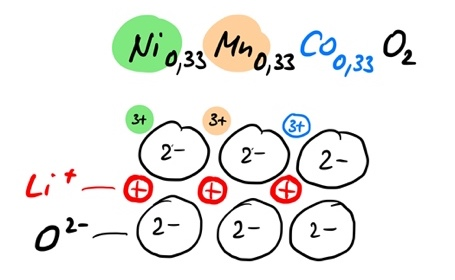 Ni0,33 Mn0,33 Co0,33 O2
3+ 3+ 3+
2- 2- 2-
Li+ + + +
O2- 2- 2- 2-